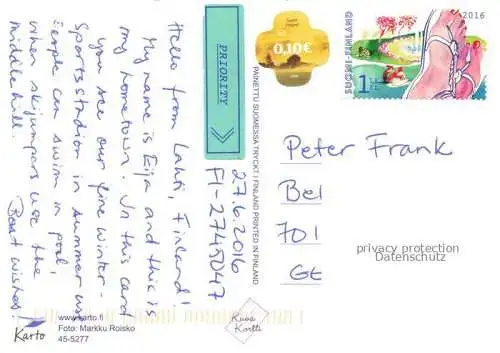 Hello from Lahti, Finland!
My name is Eija and this is
my hometown. In this card
you see our fine winter-
sportsstadion in summer use.
People can swim in pool,
when skijumpars use the
middlehill.
Best wishes!
27.6.2016
FI-2745047
PRIORITY
PAINETTU SUOMESSA TRYCKT I FINLAND PRINTED IN FINLAND
0,10€
2016
SUOMI FINLAND
1
Peter Frank
Bel
701
GE
privacy protection
Datenschutz
Karto
www.karto.fi
Foto: Markku Roisko
45-5277
Kuva
Kortti